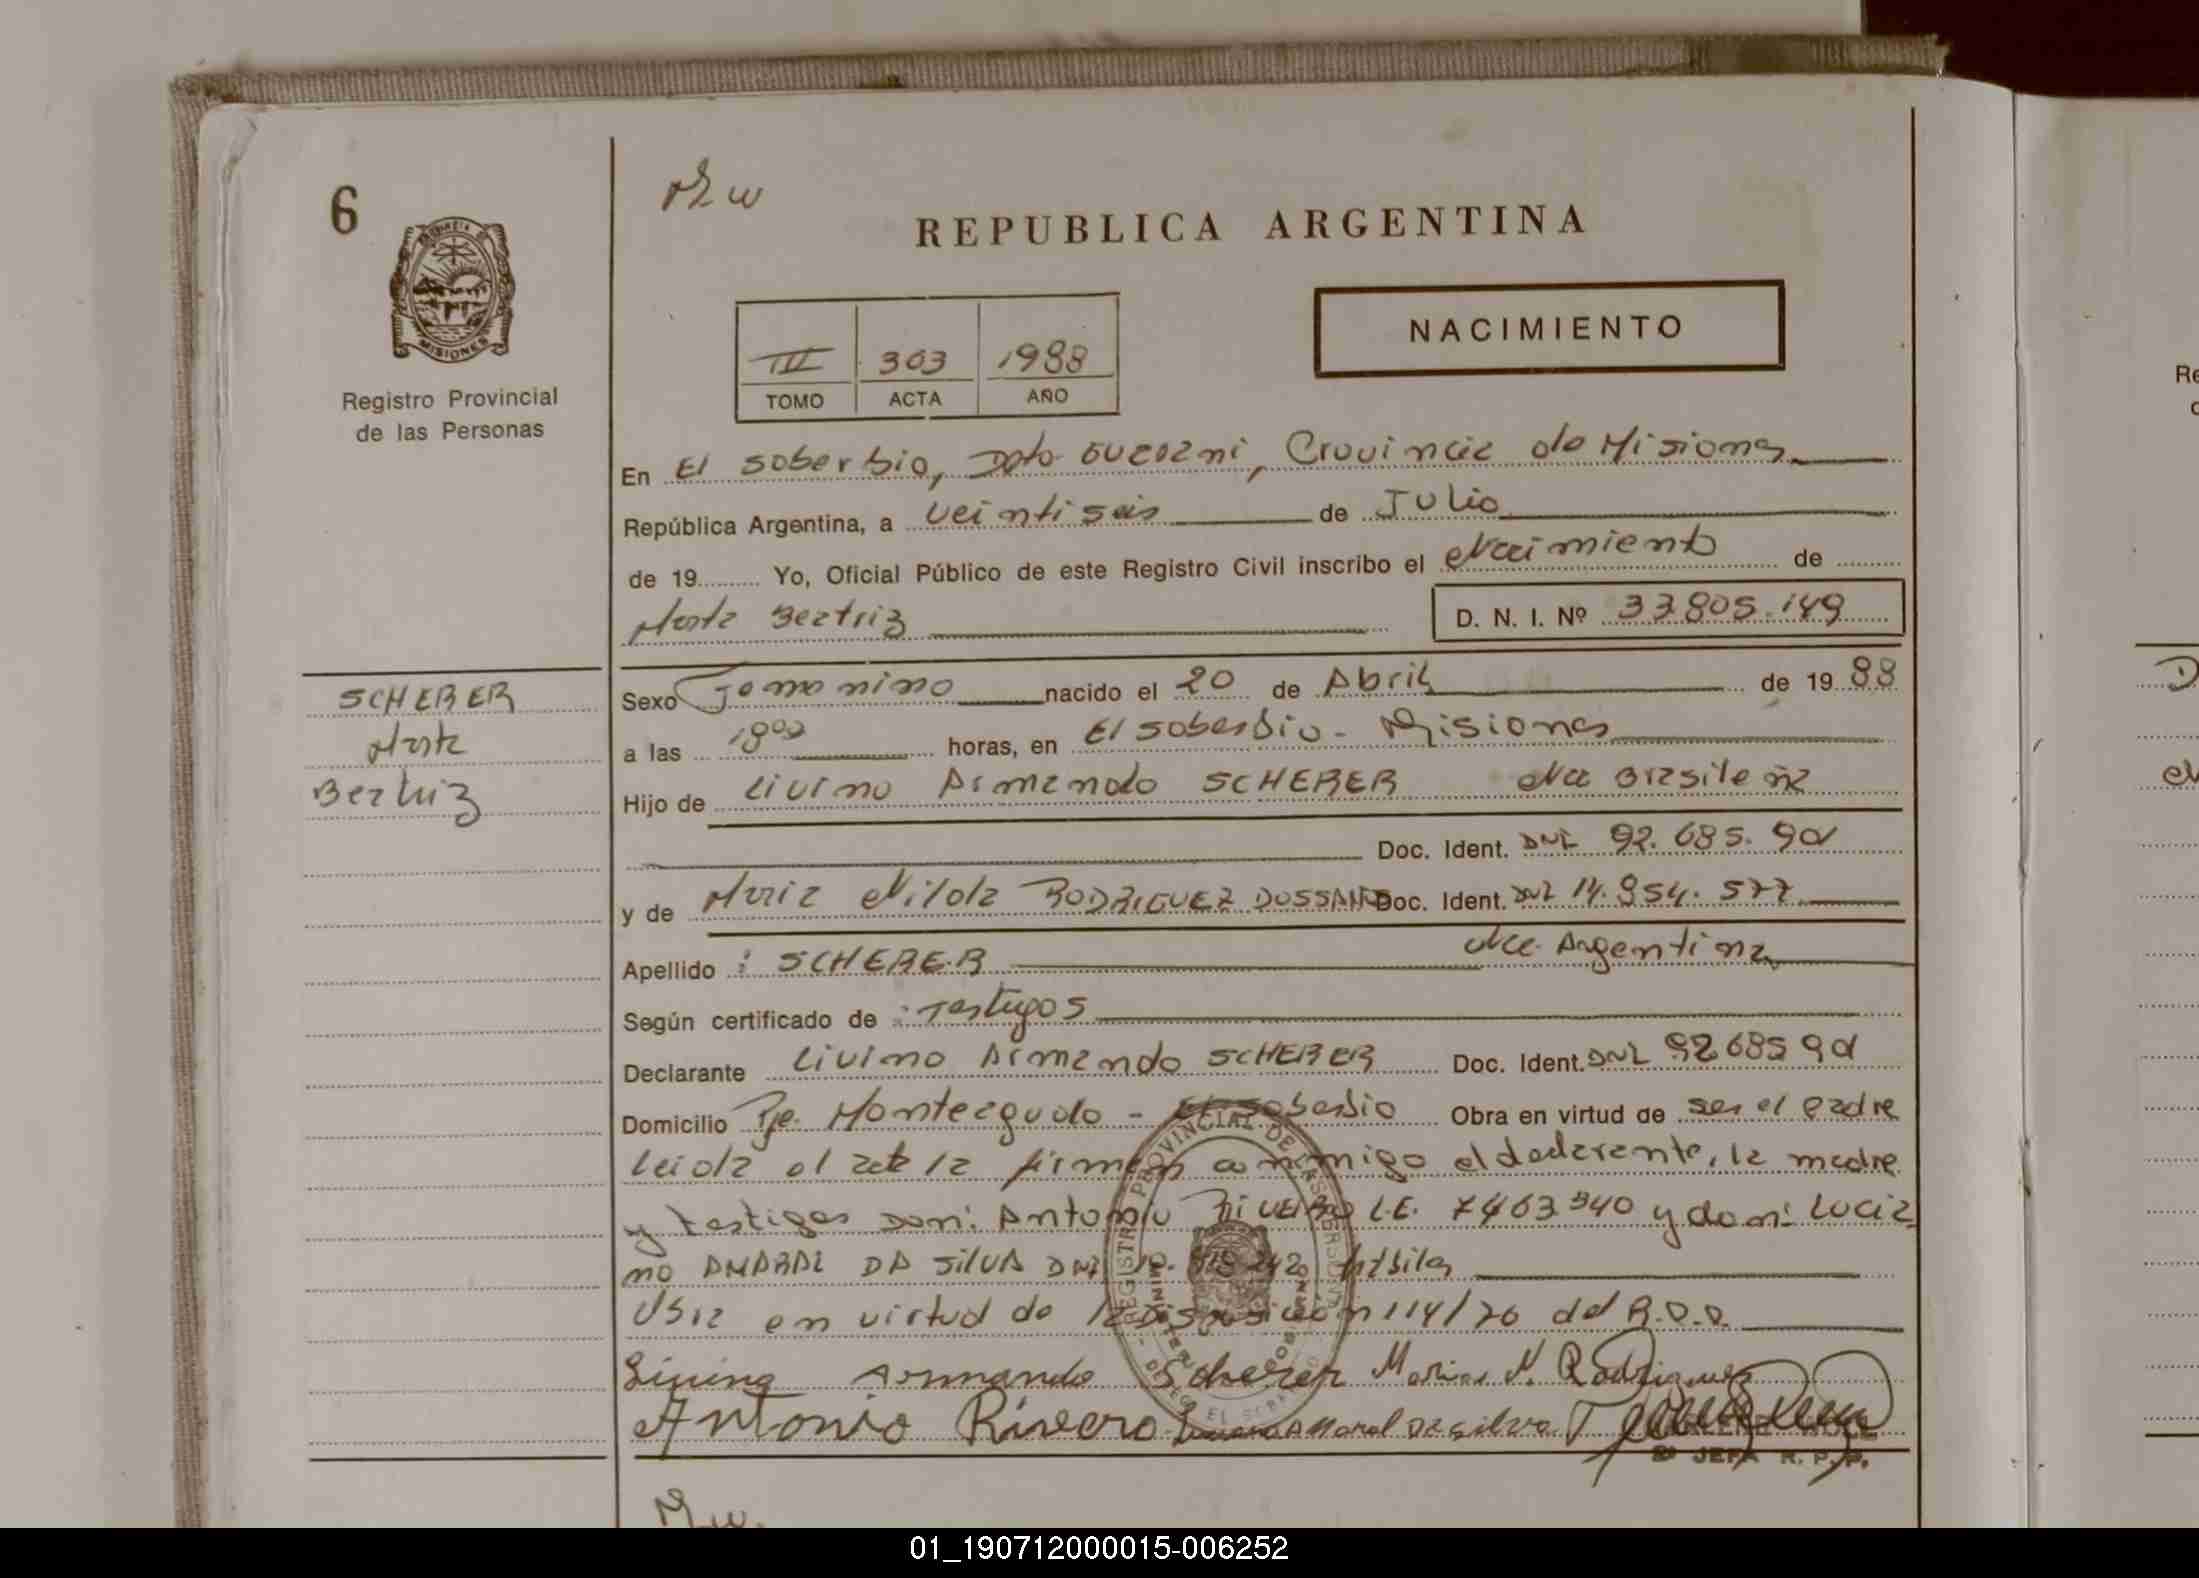 6
REPUBLICA ARGENTINA
NACIMIENTO
MISIONES
III 303 1988
TOMO ACTA AÑO
Registro Provincial
de las Personas
En El Soberbio, Dpto Guarani, Provincia de Misiones
República Argentina, a veintiseis de Julio
de 19 Yo, Oficial Público de este Registro Civil inscribo el Nacimiento de
Marta Beatriz D. N. I. Nº 33.805.149
SCHERER
Marta
Beatriz
Sexo Femenino nacido el 20 de Abril de 19 88
a las 18 horas, en El Soberbio - Misiones
Hijo de Livino Armando SCHERER Nac Brasileña
Doc. Ident. DNI 92.685.901
y de Maria Nilda RODRIGUEZ DOSSANTOS Doc. Ident. DNI 14.954.577
Apellido : SCHERER Nac Argentina
Según certificado de : Testigos
Declarante Livino Armando SCHERER Doc. Ident. DNI 92685901
Domicilio Pje. Monteagudo - El Soberbio Obra en virtud de ser el padre
Leida el acta la firman conmigo el declarante, la madre
y testigos Don: Antonio RIVERO L.E. 7463940 y don: Lucia
no AMARAL DA SILVA DNI Habiles
en virtud de la Disposicion 114/76 del
Livino Armando Scherer Maria N. Rodriguez
Antonio Rivero Amaral Da Silva
JEFA R. P. P.
REGISTRO PROVINCIAL DE LAS PERSONAS
01_190712000015-006252